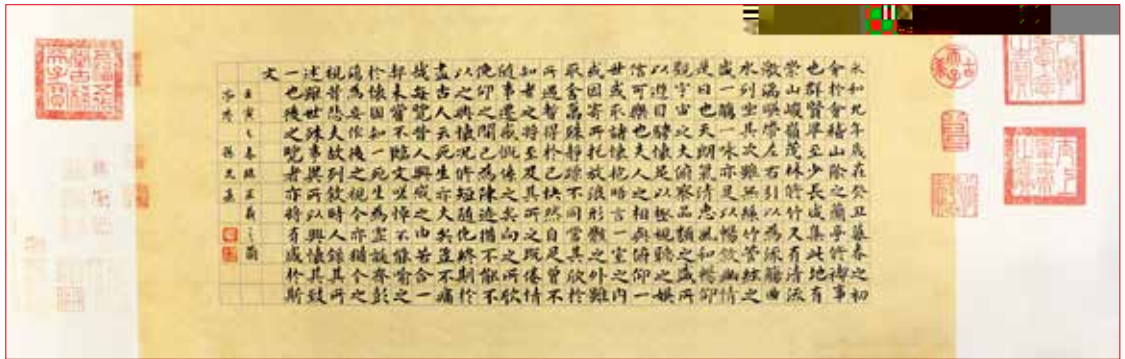 永和九年歲在癸丑暮春之初
會於會稽山陰之蘭亭脩禊事
也群賢畢至少長咸集此地有
崇山峻嶺茂林脩竹又有清流
激湍映帶左右引以為流觴曲
水列坐其次雖無絲竹管絃之
盛一觴一詠亦足以暢敘幽情
是日也天朗氣清惠風和暢仰
觀宇宙之大俯察品類之盛所
以遊目騁懷足以極視聽之娛
信可樂也夫人之相與俯仰一
世或取諸懷抱晤言一室之內
或因寄所託放浪形骸之外雖
取舍萬殊靜躁不同當其欣於
所遇暫得於己快然自足曾不
知老之將至及其所之既倦情
隨事遷感慨係之矣向之所欣
俛仰之間已為陳迹猶不能不
以之興懷況脩短隨化終期於
盡古人云死生亦大矣豈不痛
哉每覽昔人興感之由若合一
契未嘗不臨文嗟悼不能喻之
於懷固知一死生為虛誕齊彭
殤為妄作後之視今亦猶今之
視昔悲夫故列敘時人錄其所
述雖世殊事異所以興懷其致
一也後之覽者亦將有感於斯
文
壬寅之春臨王羲之蘭
亭序